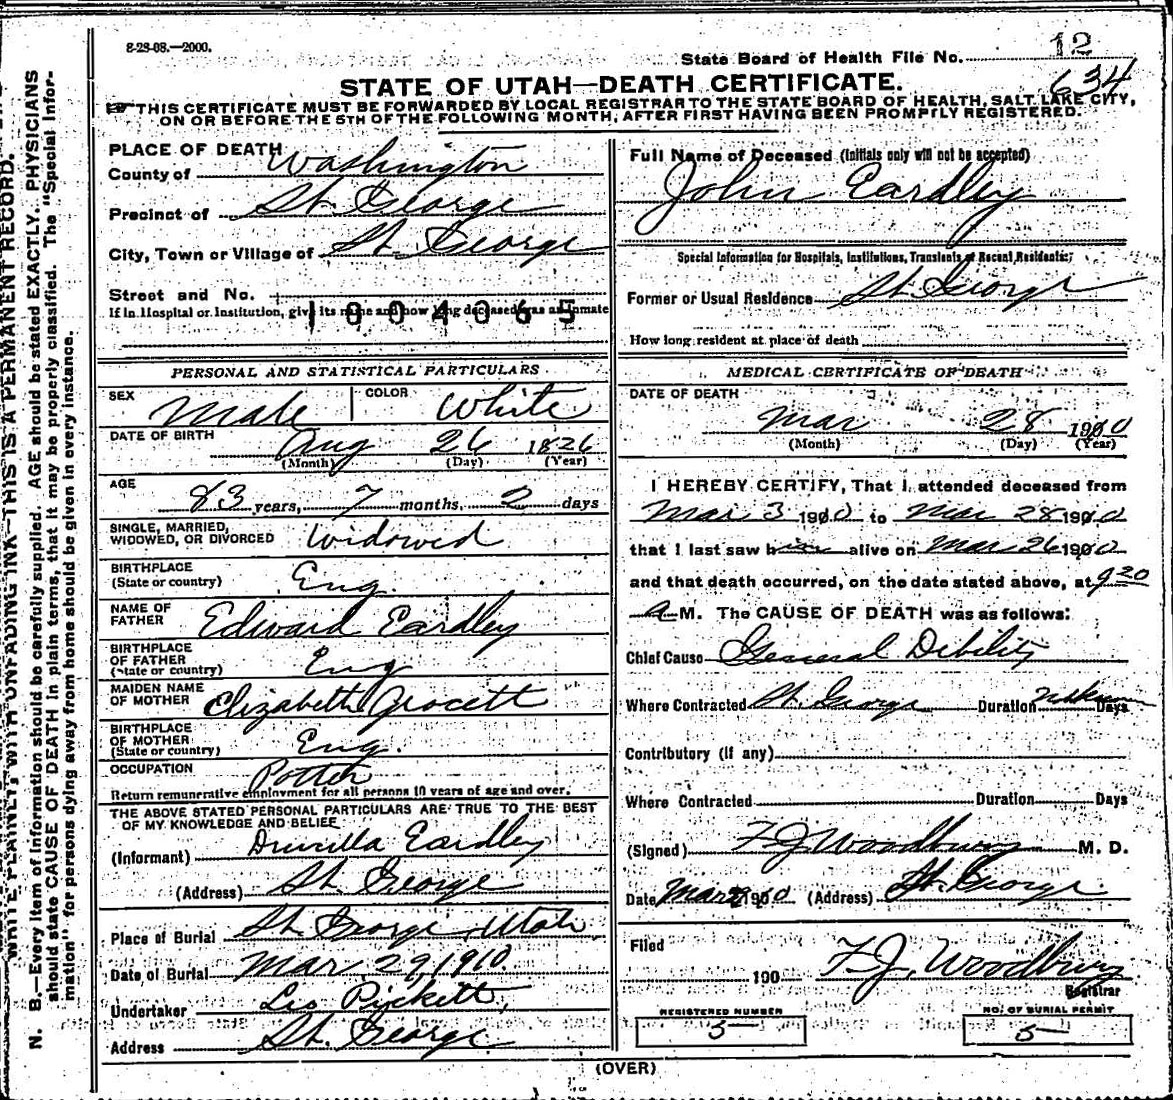 8-28-08.—2000.
State Board of Health File No. 12
634
STATE OF UTAH—DEATH CERTIFICATE.
THIS CERTIFICATE MUST BE FORWARDED BY LOCAL REGISTRAR TO THE STATE BOARD OF HEALTH, SALT LAKE CITY,
ON OR BEFORE THE 5TH OF THE FOLLOWING MONTH, AFTER FIRST HAVING BEEN PROMPTLY REGISTERED.
PLACE OF DEATH
County of Washington
Precinct of St. George
City, Town or Village of St. George
Street and No.
If in Hospital or Institution, give its name and how long deceased was an inmate
1004065
PERSONAL AND STATISTICAL PARTICULARS
SEX Male COLOR White
DATE OF BIRTH Aug 26 1826
(Month) (Day) (Year)
AGE
83 years, 7 months, 2 days
SINGLE, MARRIED,
WIDOWED, OR DIVORCED Widowed
BIRTHPLACE
(State or country) Eng.
NAME OF
FATHER Edward Eardley
BIRTHPLACE
OF FATHER
(State or country) Eng
MAIDEN NAME
OF MOTHER Elizabeth Grocett
BIRTHPLACE
OF MOTHER
(State or country) Eng.
OCCUPATION Potter
Return remunerative employment for all persons 10 years of age and over.
THE ABOVE STATED PERSONAL PARTICULARS ARE TRUE TO THE BEST
OF MY KNOWLEDGE AND BELIEF
(Informant) Drucilla Eardley
(Address) St. George
Place of Burial St. George, Utah
Date of Burial Mar. 29, 1910.
Undertaker Leo Pickett,
Address St. George
Full Name of Deceased (Initials only will not be accepted)
John Eardley
Special Information for Hospitals, Institutions, Transients or Recent Residents:
Former or Usual Residence St. George
How long resident at place of death
MEDICAL CERTIFICATE OF DEATH
DATE OF DEATH
Mar 28 1910
(Month) (Day) (Year)
I HEREBY CERTIFY, That I attended deceased from
Mar 3 1910 to Mar 28 1910
that I last saw him alive on Mar 26 1910
and that death occurred, on the date stated above, at 9 20
A M. The CAUSE OF DEATH was as follows:
Chief Cause General Debility
Where Contracted St. George Duration Days
Contributory (if any)
Where Contracted Duration Days
(Signed) F. J. Woodbury M. D.
Date Mar 1910 (Address) St. George
Filed
190 F. J. Woodbury
Registrar
REGISTERED NUMBER
5
NO. OF BURIAL PERMIT
5
(OVER)
WRITE PLAINLY, WITH UNFADING INK—THIS IS A PERMANENT RECORD.
N. B.—Every item of information should be carefully supplied. AGE should be stated EXACTLY. PHYSICIANS
should state CAUSE OF DEATH in plain terms, that it may be properly classified. The "Special Infor-
mation" for persons dying away from home should be given in every instance.